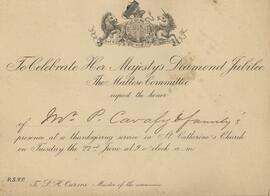 To Celebrate Her Majesty's Diamond Jubilee
The Maltese Committee
request the honor
of Mr. P. Cavafy & family's
presence at a thanksgiving service in St. Catherine's Church
on Tuesday the 22nd June at 9 o'clock a.m.
R.S.V.P.
To D. H. Master of the ceremonies